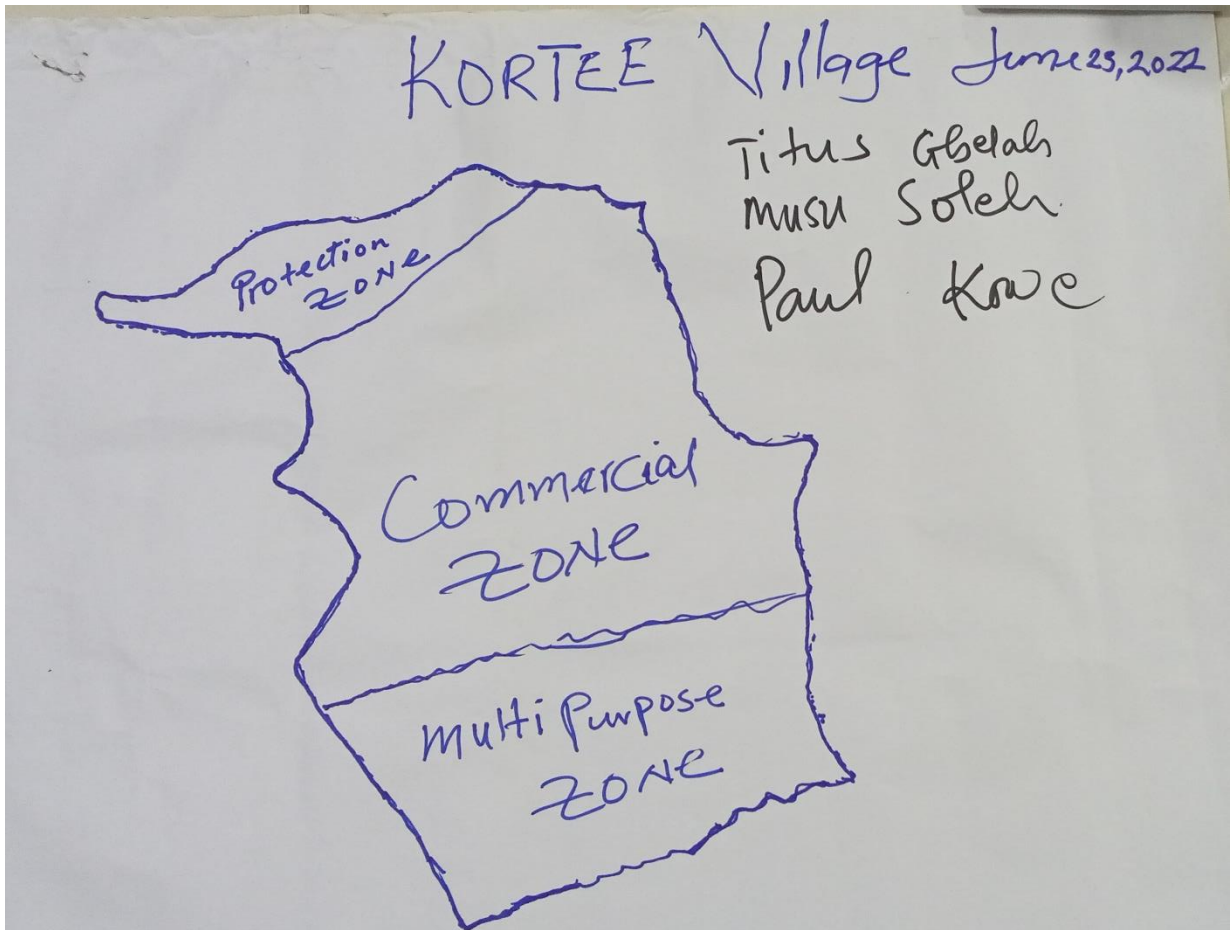 KORTEE Village June 23, 2022
Titus Gbelah
Musu Soleh
Paul Kowe
Protection
ZONE
Commercial
ZONE
Multi Purpose
ZONE